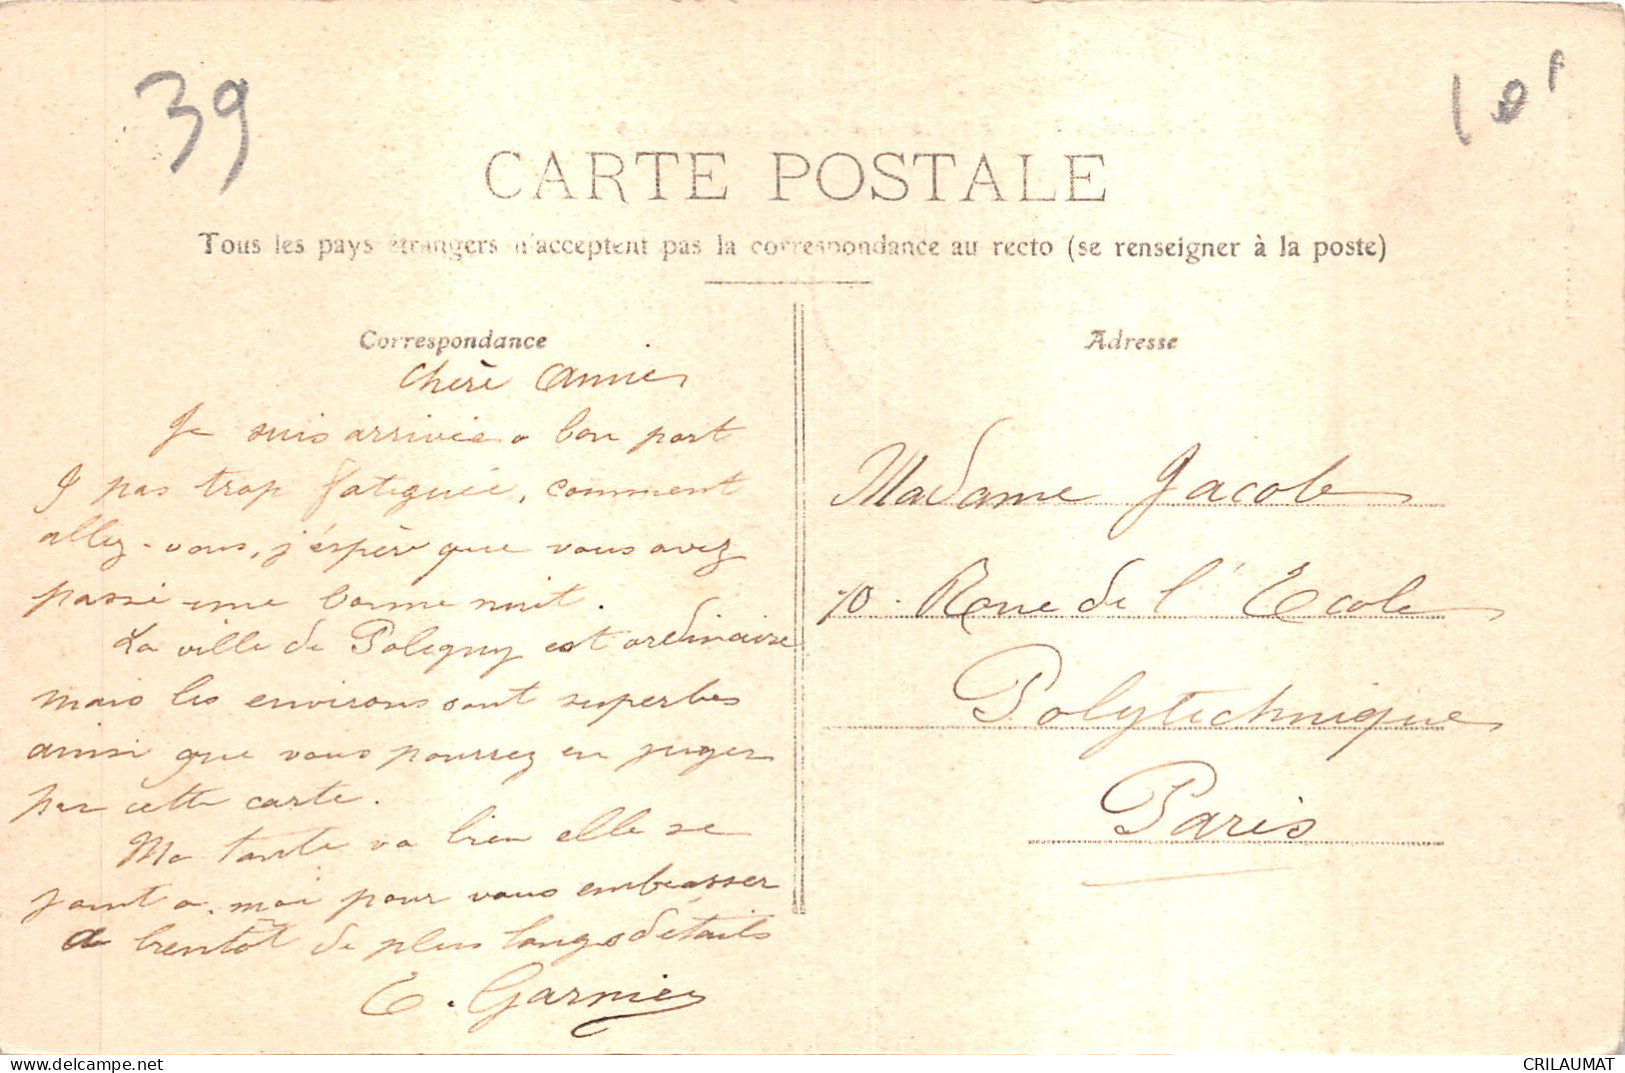 39
10F
CARTE POSTALE
Tous les pays étrangers n'acceptent pas la correspondance au recto (se renseigner à la poste)
Correspondance
Chère Amie
Je suis arrivée a bon port
& pas trop fatiguée, comment
allez-vous, j'éspère que vous avez
passé une bonne nuit.
La ville de Poligny est ordinaire
mais les environs sont superbes
ainsi que vous pourrez en juger
par cette carte.
Ma tante va bien elle se
joint a moi pour vous embrasser
a bientôt de plus longs détails
E. Garnier
Adresse
Madame Jacob
10. Rue de l'Ecole
Polytechnique
Paris
delcampe.net
CRILAUMAT